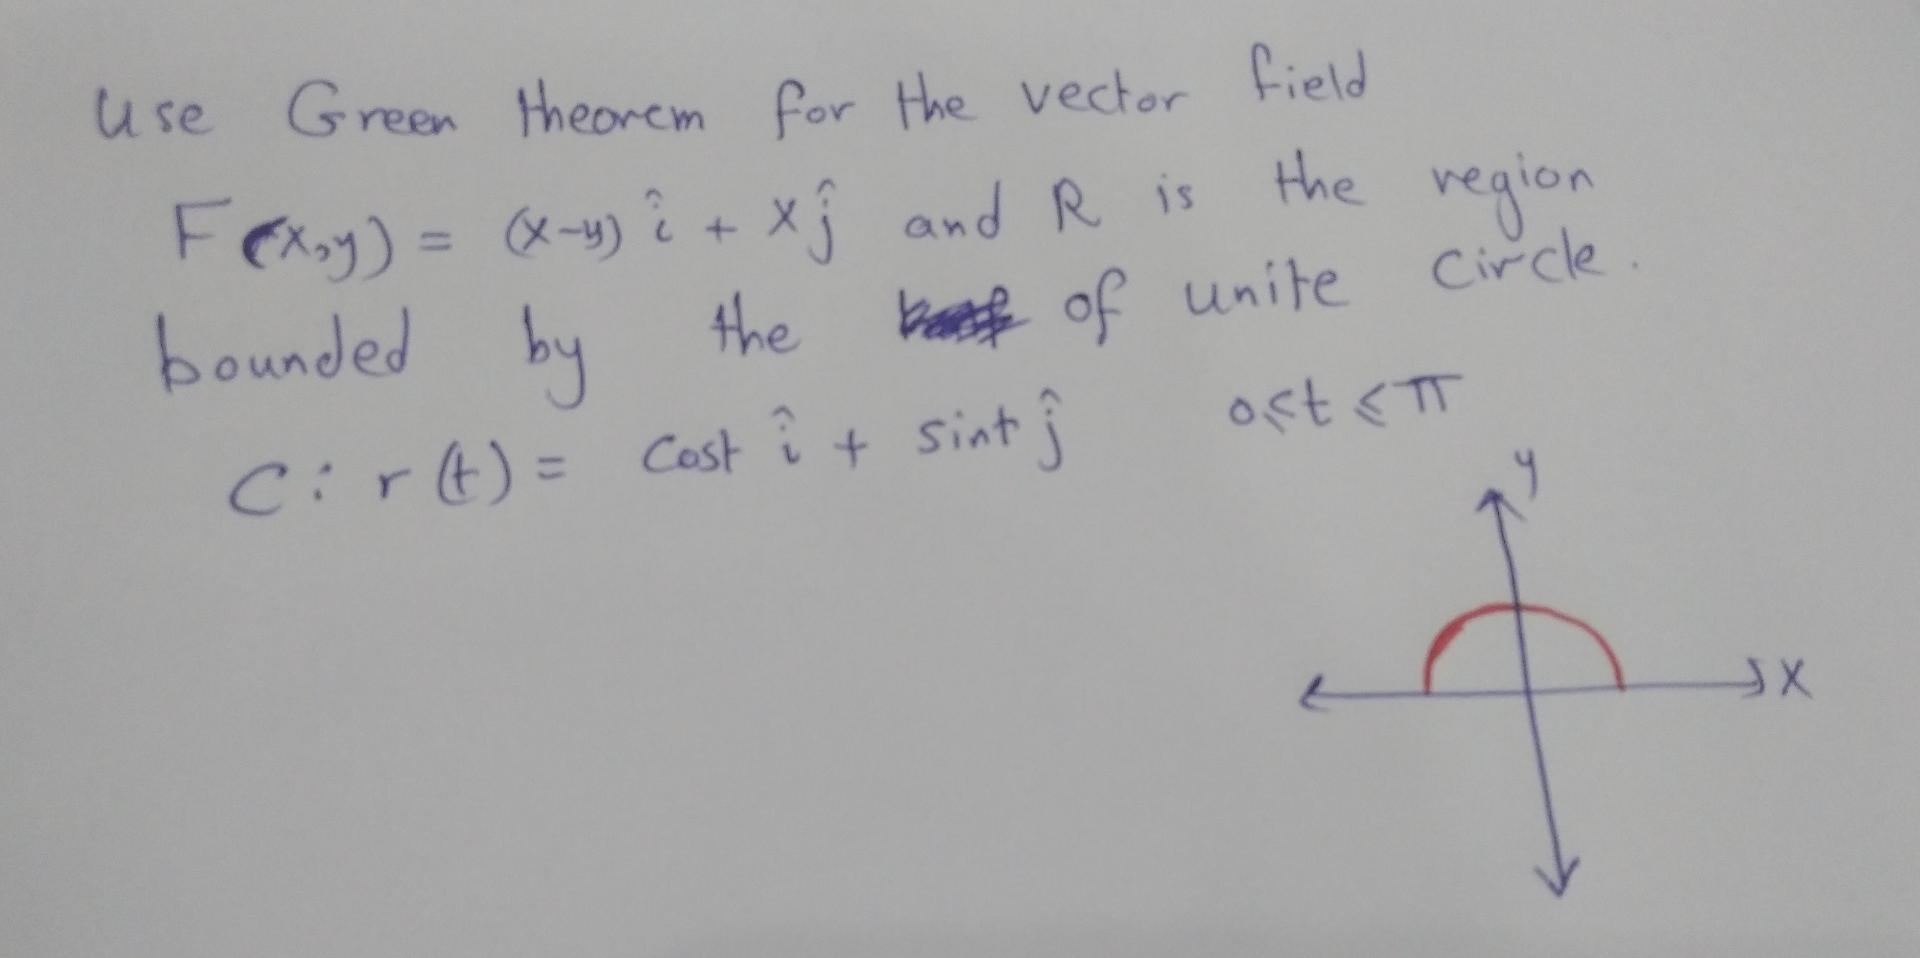 Use Green theorem for the vector field
F(x,y) = (x-y) î + x ĵ and R is the region
bounded by the of unite circle.
C: r(t) = cost î + sint ĵ 0≤t≤π
y
x